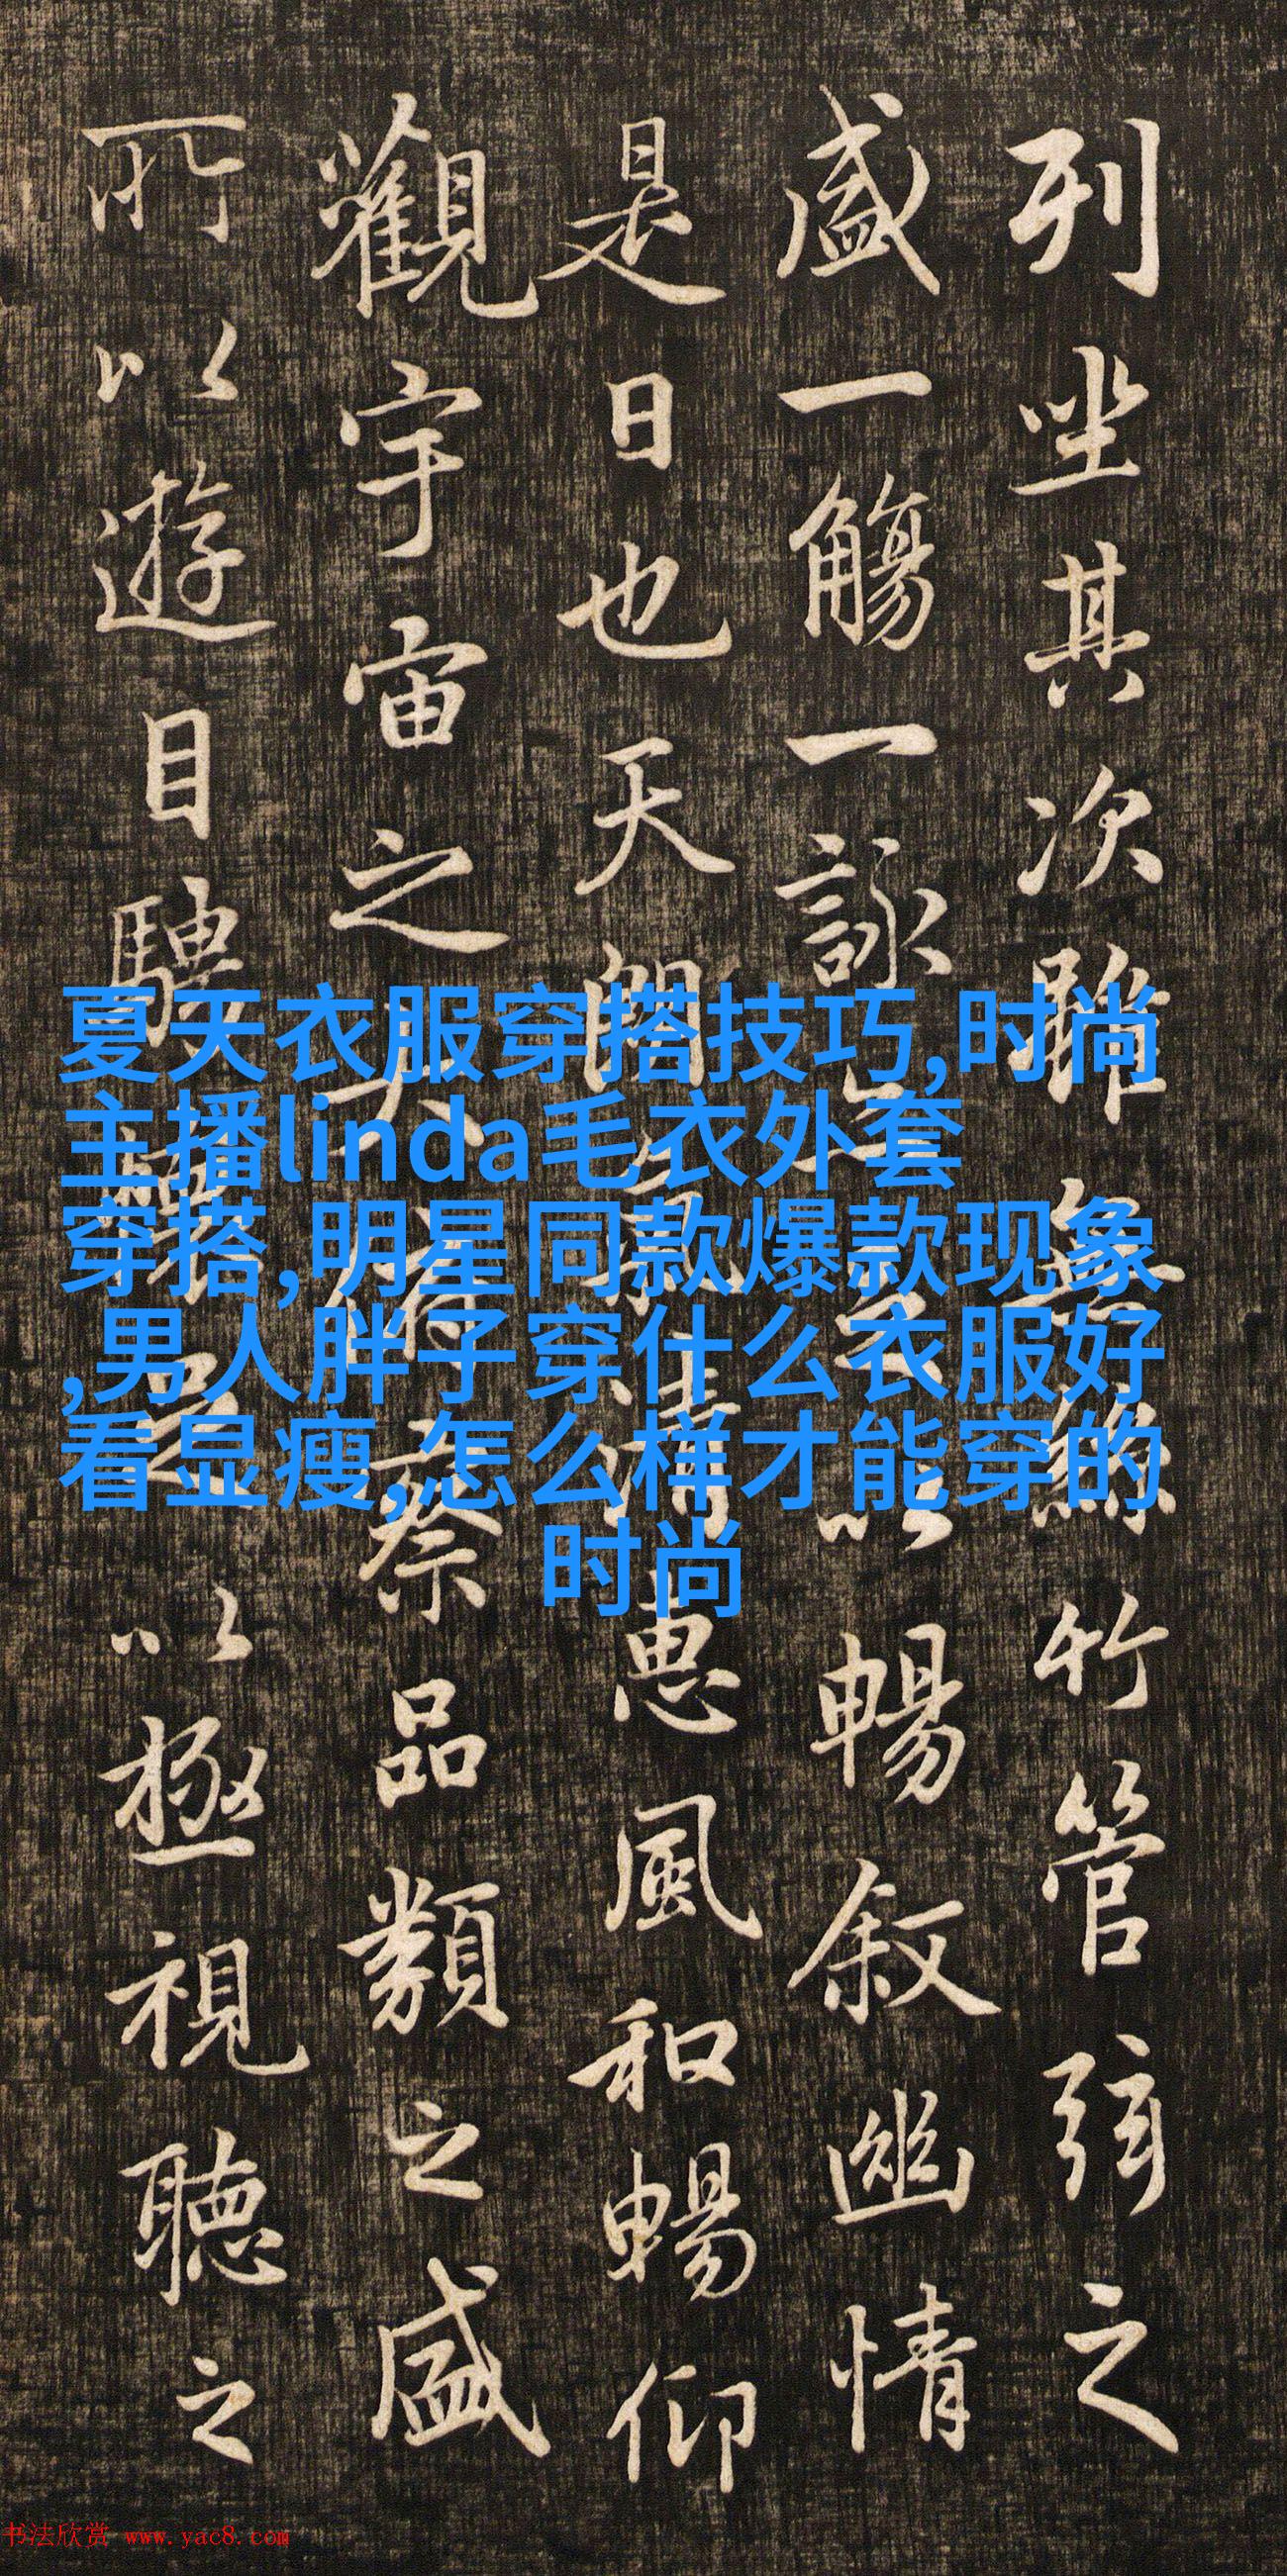 列坐其次雖無絲竹管弦之
盛一觴一詠以暢叙幽情
是日也天朗清惠風和暢仰
觀宇宙之大俯察品類之盛
所以遊目騁以極視聽之
夏天衣服穿搭技巧,时尚
主播linda毛衣外套
穿搭,明星同款爆款现象
,男人胖子穿什么衣服好
看显瘦,怎么样才能穿的
时尚
书法欣赏 www.yac8.com